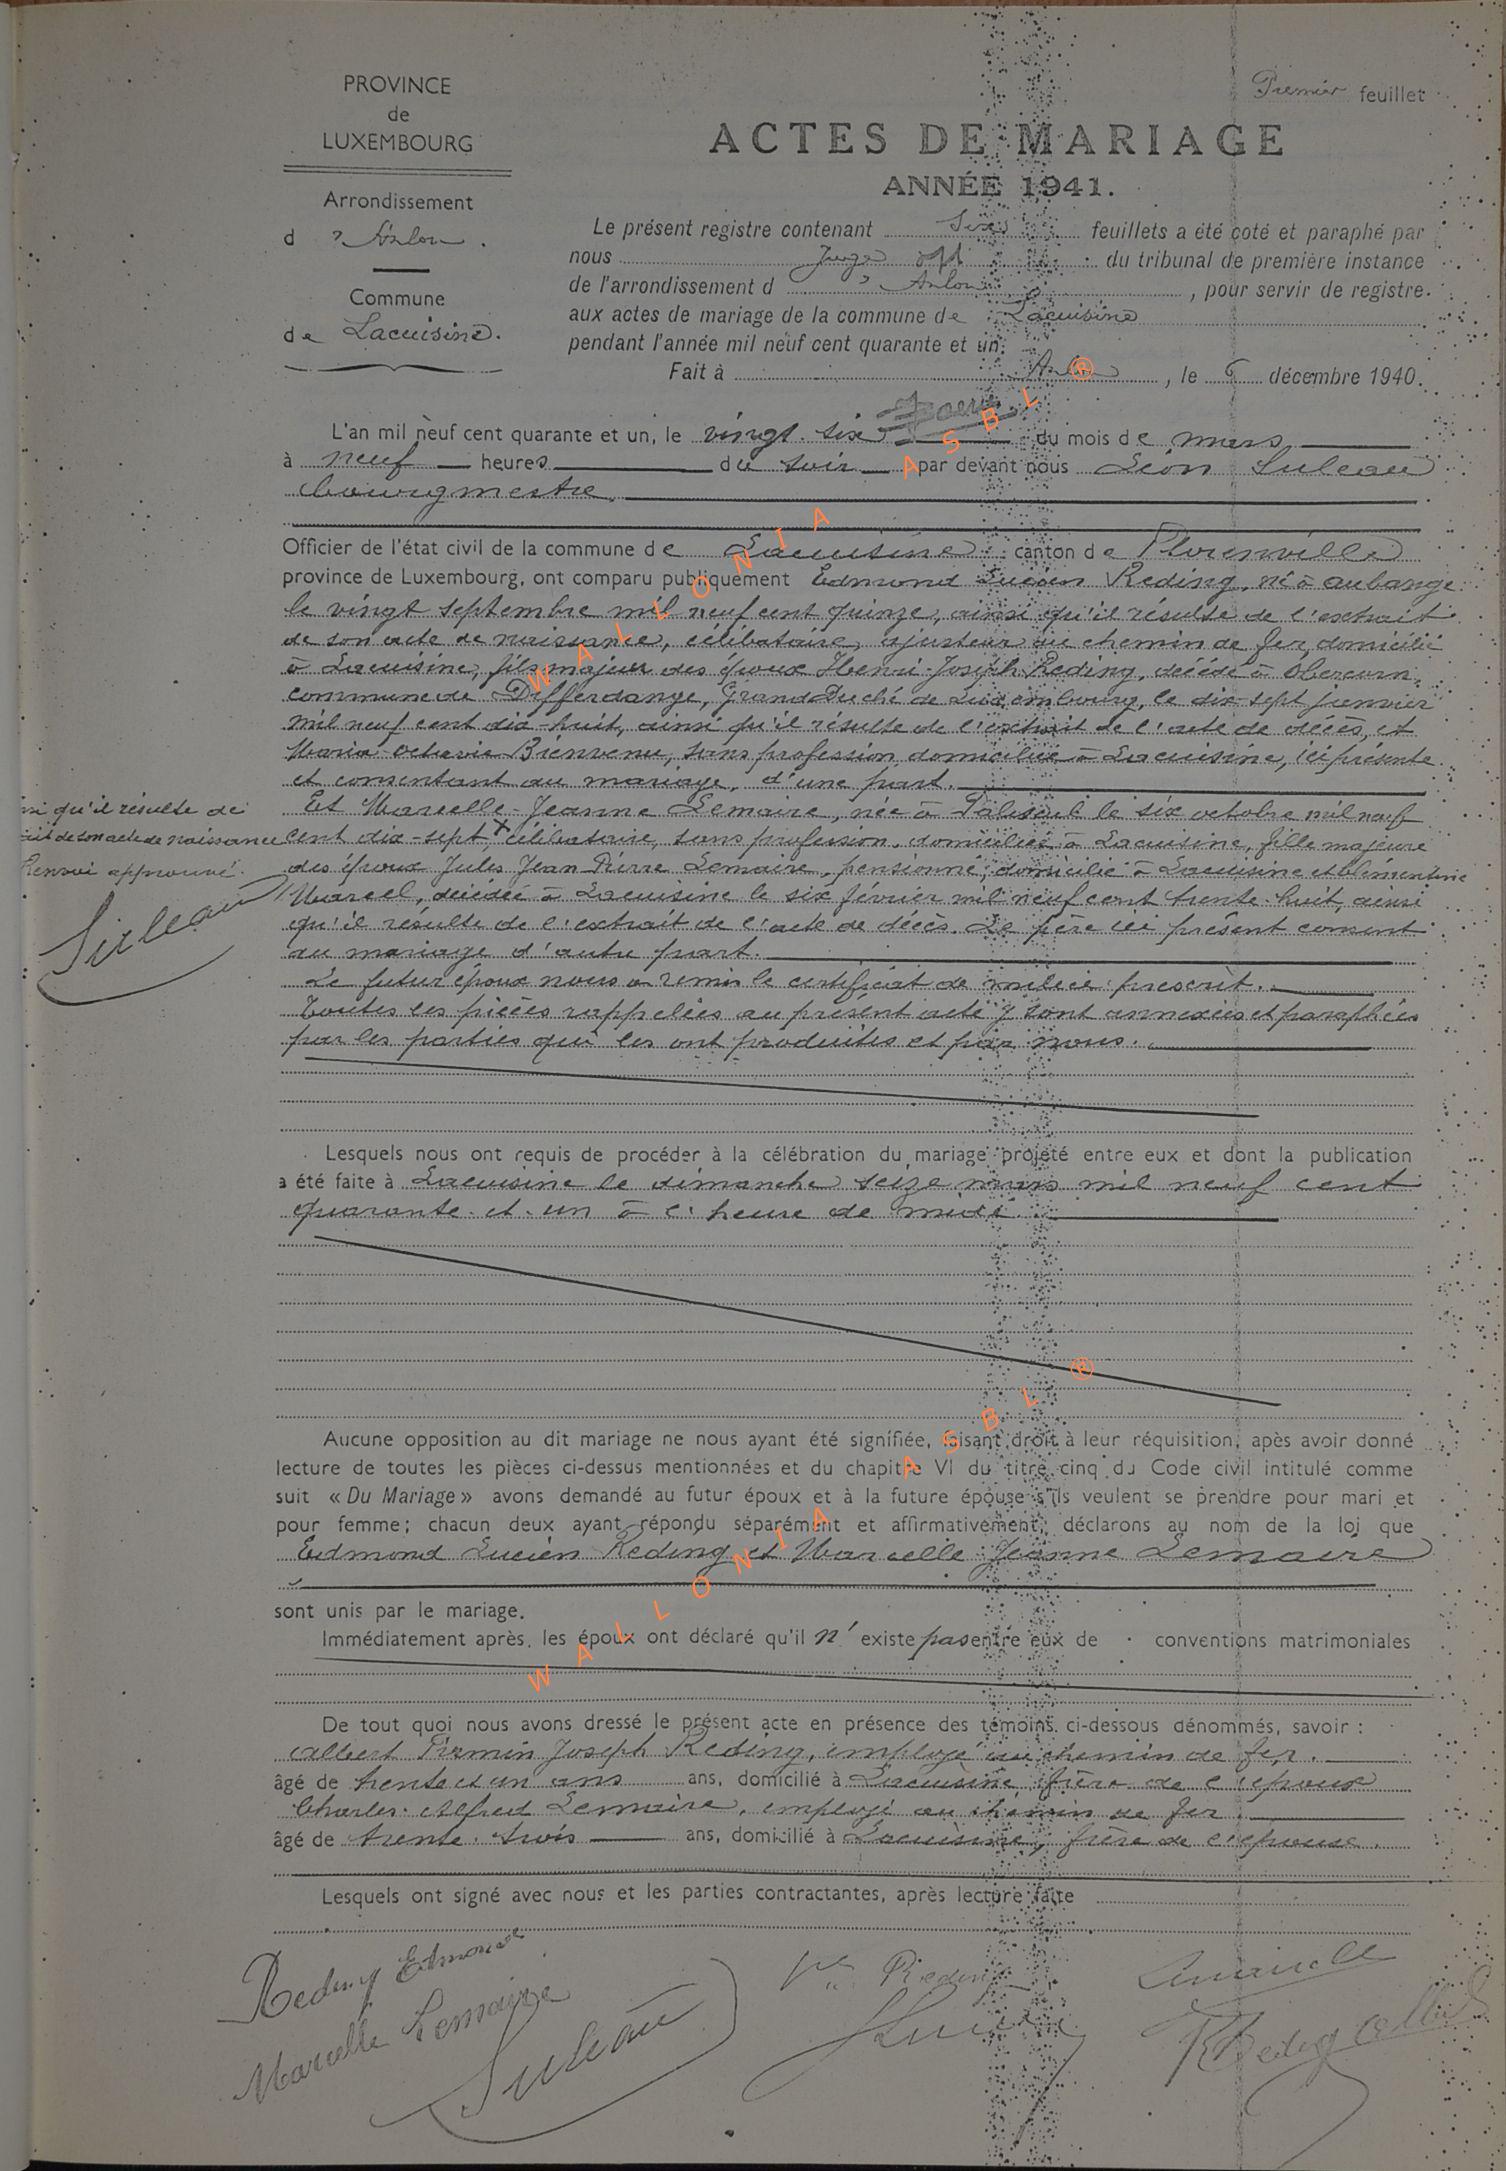 PROVINCE
de
LUXEMBOURG
Arrondissement
d'Arlon.
Commune
de Lacuisine.
Premier feuillet
ACTES DE MARIAGE
ANNÉE 1941.
Le présent registre contenant feuillets a été coté et paraphé par
nous Juge du tribunal de première instance
de l'arrondissement d'Arlon, pour servir de registre
aux actes de mariage de la commune de Lacuisine
pendant l'année mil neuf cent quarante et un.
Fait à Arlon, le 6 décembre 1940.
L'an mil neuf cent quarante et un, le vingt-six du mois de mars
à neuf heures du soir par devant nous Léon Suleau
bourgmestre
Officier de l'état civil de la commune de Lacuisine canton de Florenville
province de Luxembourg, ont comparu publiquement Edmond Lucien Reding, né à Aubange
le vingt septembre mil neuf cent quinze, ainsi qu'il résulte de l'extrait
de son acte de naissance, célibataire, ajusteur au chemin de fer, domicilié
à Lacuisine, fils majeur des époux Henri-Joseph Reding, décédé à Obercorn,
commune de Differdange, Grand Duché de Luxembourg, le dix-sept janvier
mil neuf cent dix-huit, ainsi qu'il résulte de l'extrait de l'acte de décès, et
Maria Octavie Bienvenu, sans profession domiciliée à Lacuisine, ici présente
et consentant au mariage, d'une part.
Et Marcelle-Jeanne Lemaire, née à Paliseul le six octobre mil neuf
cent dix-sept, célibataire, sans profession, domiciliée à Lacuisine, fille majeure
des époux Jules Jean Pierre Lemaire, pensionné, domicilié à Lacuisine et Clémentine
Marcel, décédée à Lacuisine le six février mil neuf cent trente-huit, ainsi
qu'il résulte de l'extrait de l'acte de décès. Le père ici présent consent
au mariage d'autre part.
Le futur époux nous a remis le certificat de milice prescrit.
Toutes les pièces rappelées au présent acte y sont annexées et paraphées
par les parties qui les ont produites et par nous.
qu'il résulte de
de son acte de naissance
Renvoi approuvé.
Suleau
Lesquels nous ont requis de procéder à la célébration du mariage projeté entre eux et dont la publication
a été faite à Lacuisine le dimanche seize mars mil neuf cent
quarante-et-un à l'heure de midi.
Aucune opposition au dit mariage ne nous ayant été signifiée, faisant droit à leur réquisition, apès avoir donné
lecture de toutes les pièces ci-dessus mentionnées et du chapitre VI du titre cinq du Code civil intitulé comme
suit « Du Mariage » avons demandé au futur époux et à la future épouse s'ils veulent se prendre pour mari et
pour femme; chacun deux ayant répondu séparément et affirmativement, déclarons au nom de la loi que
Edmond Lucien Reding et Marcelle Jeanne Lemaire
sont unis par le mariage.
Immédiatement après, les époux ont déclaré qu'il n'existe pas entre eux de conventions matrimoniales
De tout quoi nous avons dressé le présent acte en présence des témoins ci-dessous dénommés, savoir :
Albert Firmin Joseph Reding, employé au chemin de fer.
âgé de trente et un ans ans, domicilié à Lacuisine frère de l'époux
Charles Alfred Lemaire, employé au chemin de fer
âgé de trente-trois ans, domicilié à Lacuisine, frère de l'épouse.
Lesquels ont signé avec nous et les parties contractantes, après lecture faite
Reding Edmond
Marcelle Lemaire
Suleau
Ve Reding
Reding Albert
WALLONIA ASBL ®
WALLONIA ASBL ®